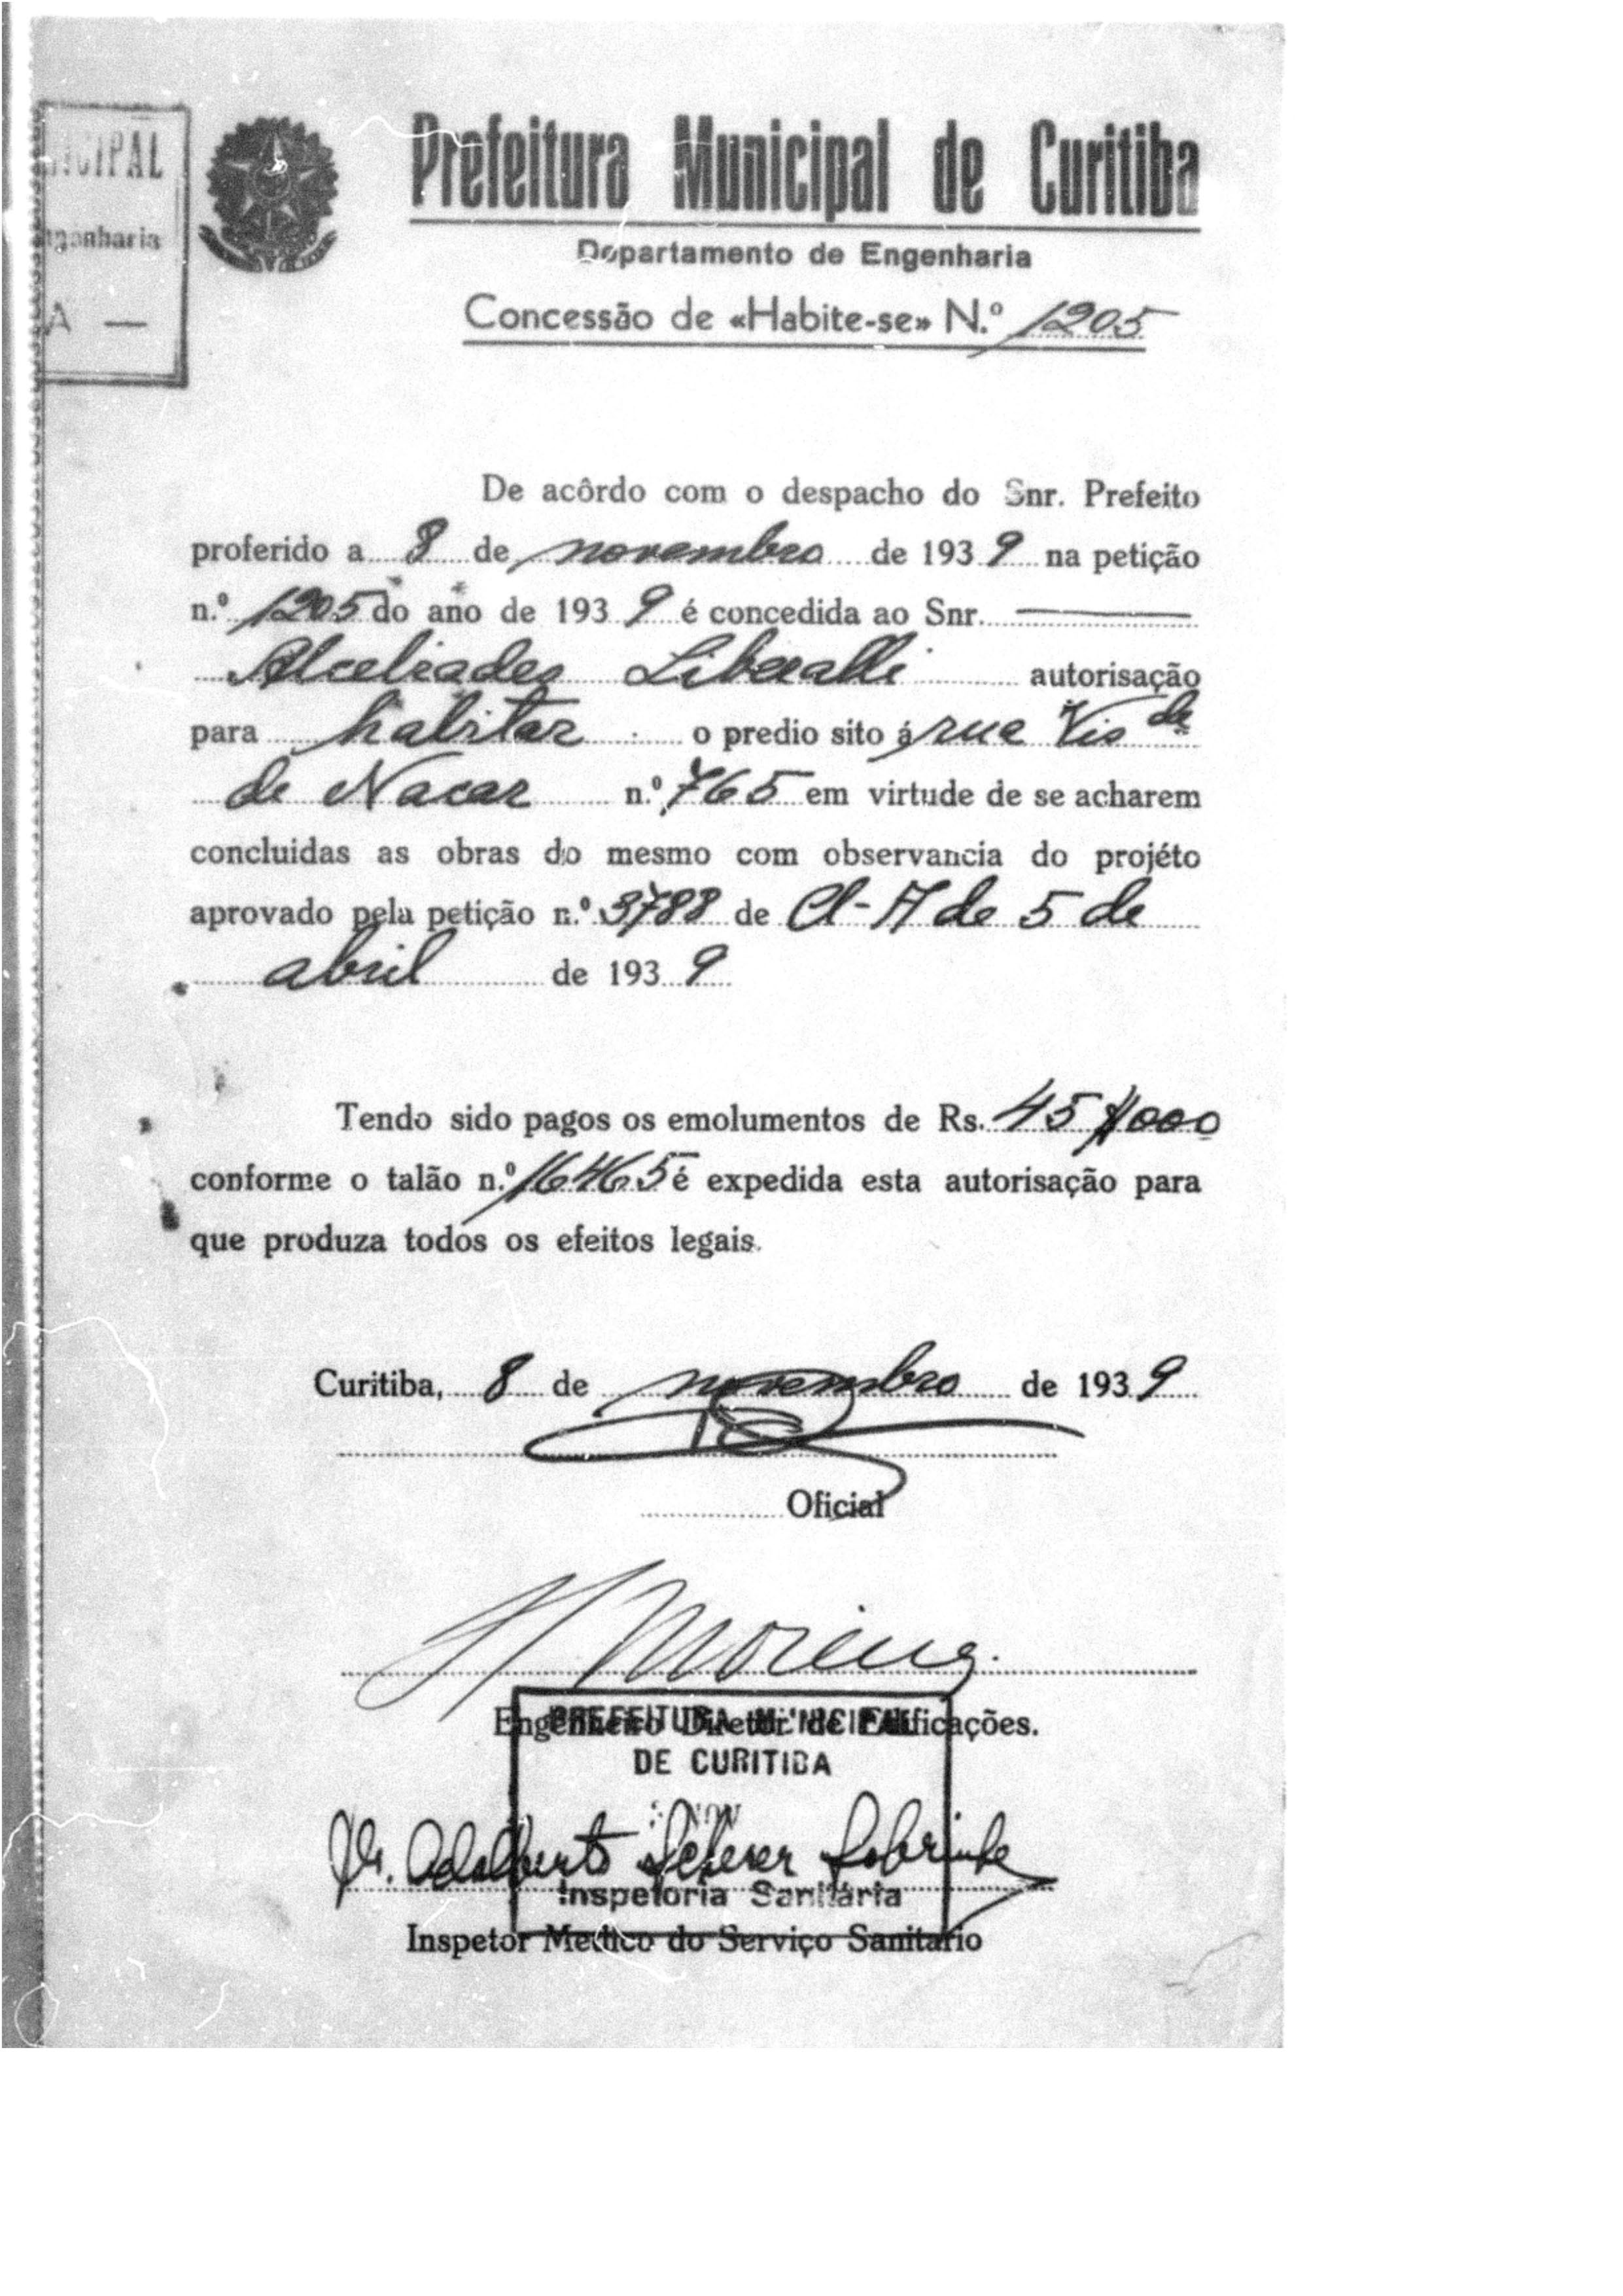 ICIPAL
ngenharia
A —
Prefeitura Municipal de Curitiba
Departamento de Engenharia
Concessão de «Habite-se» N.º 1205
De acôrdo com o despacho do Snr. Prefeito
proferido a 8 de novembro de 1939 na petição
n.º 1205 do ano de 1939 é concedida ao Snr.
Alcebiades Liberalli autorisação
para habitar o predio sito á rua Vis de
de Nacar n.º 765 em virtude de se acharem
concluidas as obras do mesmo com observancia do projéto
aprovado pela petição n.º 3788 de Cl-A de 5 de
abril de 1939
Tendo sido pagos os emolumentos de Rs. 45$000
conforme o talão n.º 16465 é expedida esta autorisação para
que produza todos os efeitos legais.
Curitiba, 8 de novembro de 1939
Oficial
Engenheiro Diretor de Edificações.
PREFEITURA MUNICIPAL
DE CURITIBA
NOV
Dr. Adalberto Scherer Sobrinho
Inspetoria Sanitária
Inspetor Medico do Serviço Sanitario